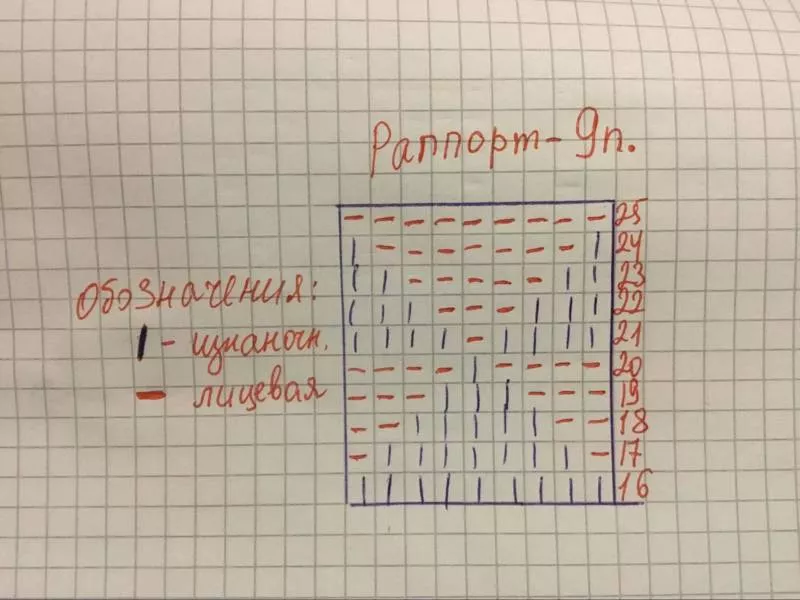 Раппорт - 9п.
Обозначения:
| - изнаночн.
— лицевая
— — — — — — — — — 25
| — — — — — — — | 24
| | — — — — — | | 23
| | | — — — | | | 22
| | | | — | | | | 21
— — — — | — — — — 20
— — — | | | — — — 19
— — | | | | | — — 18
— | | | | | | | — 17
| | | | | | | | | 16